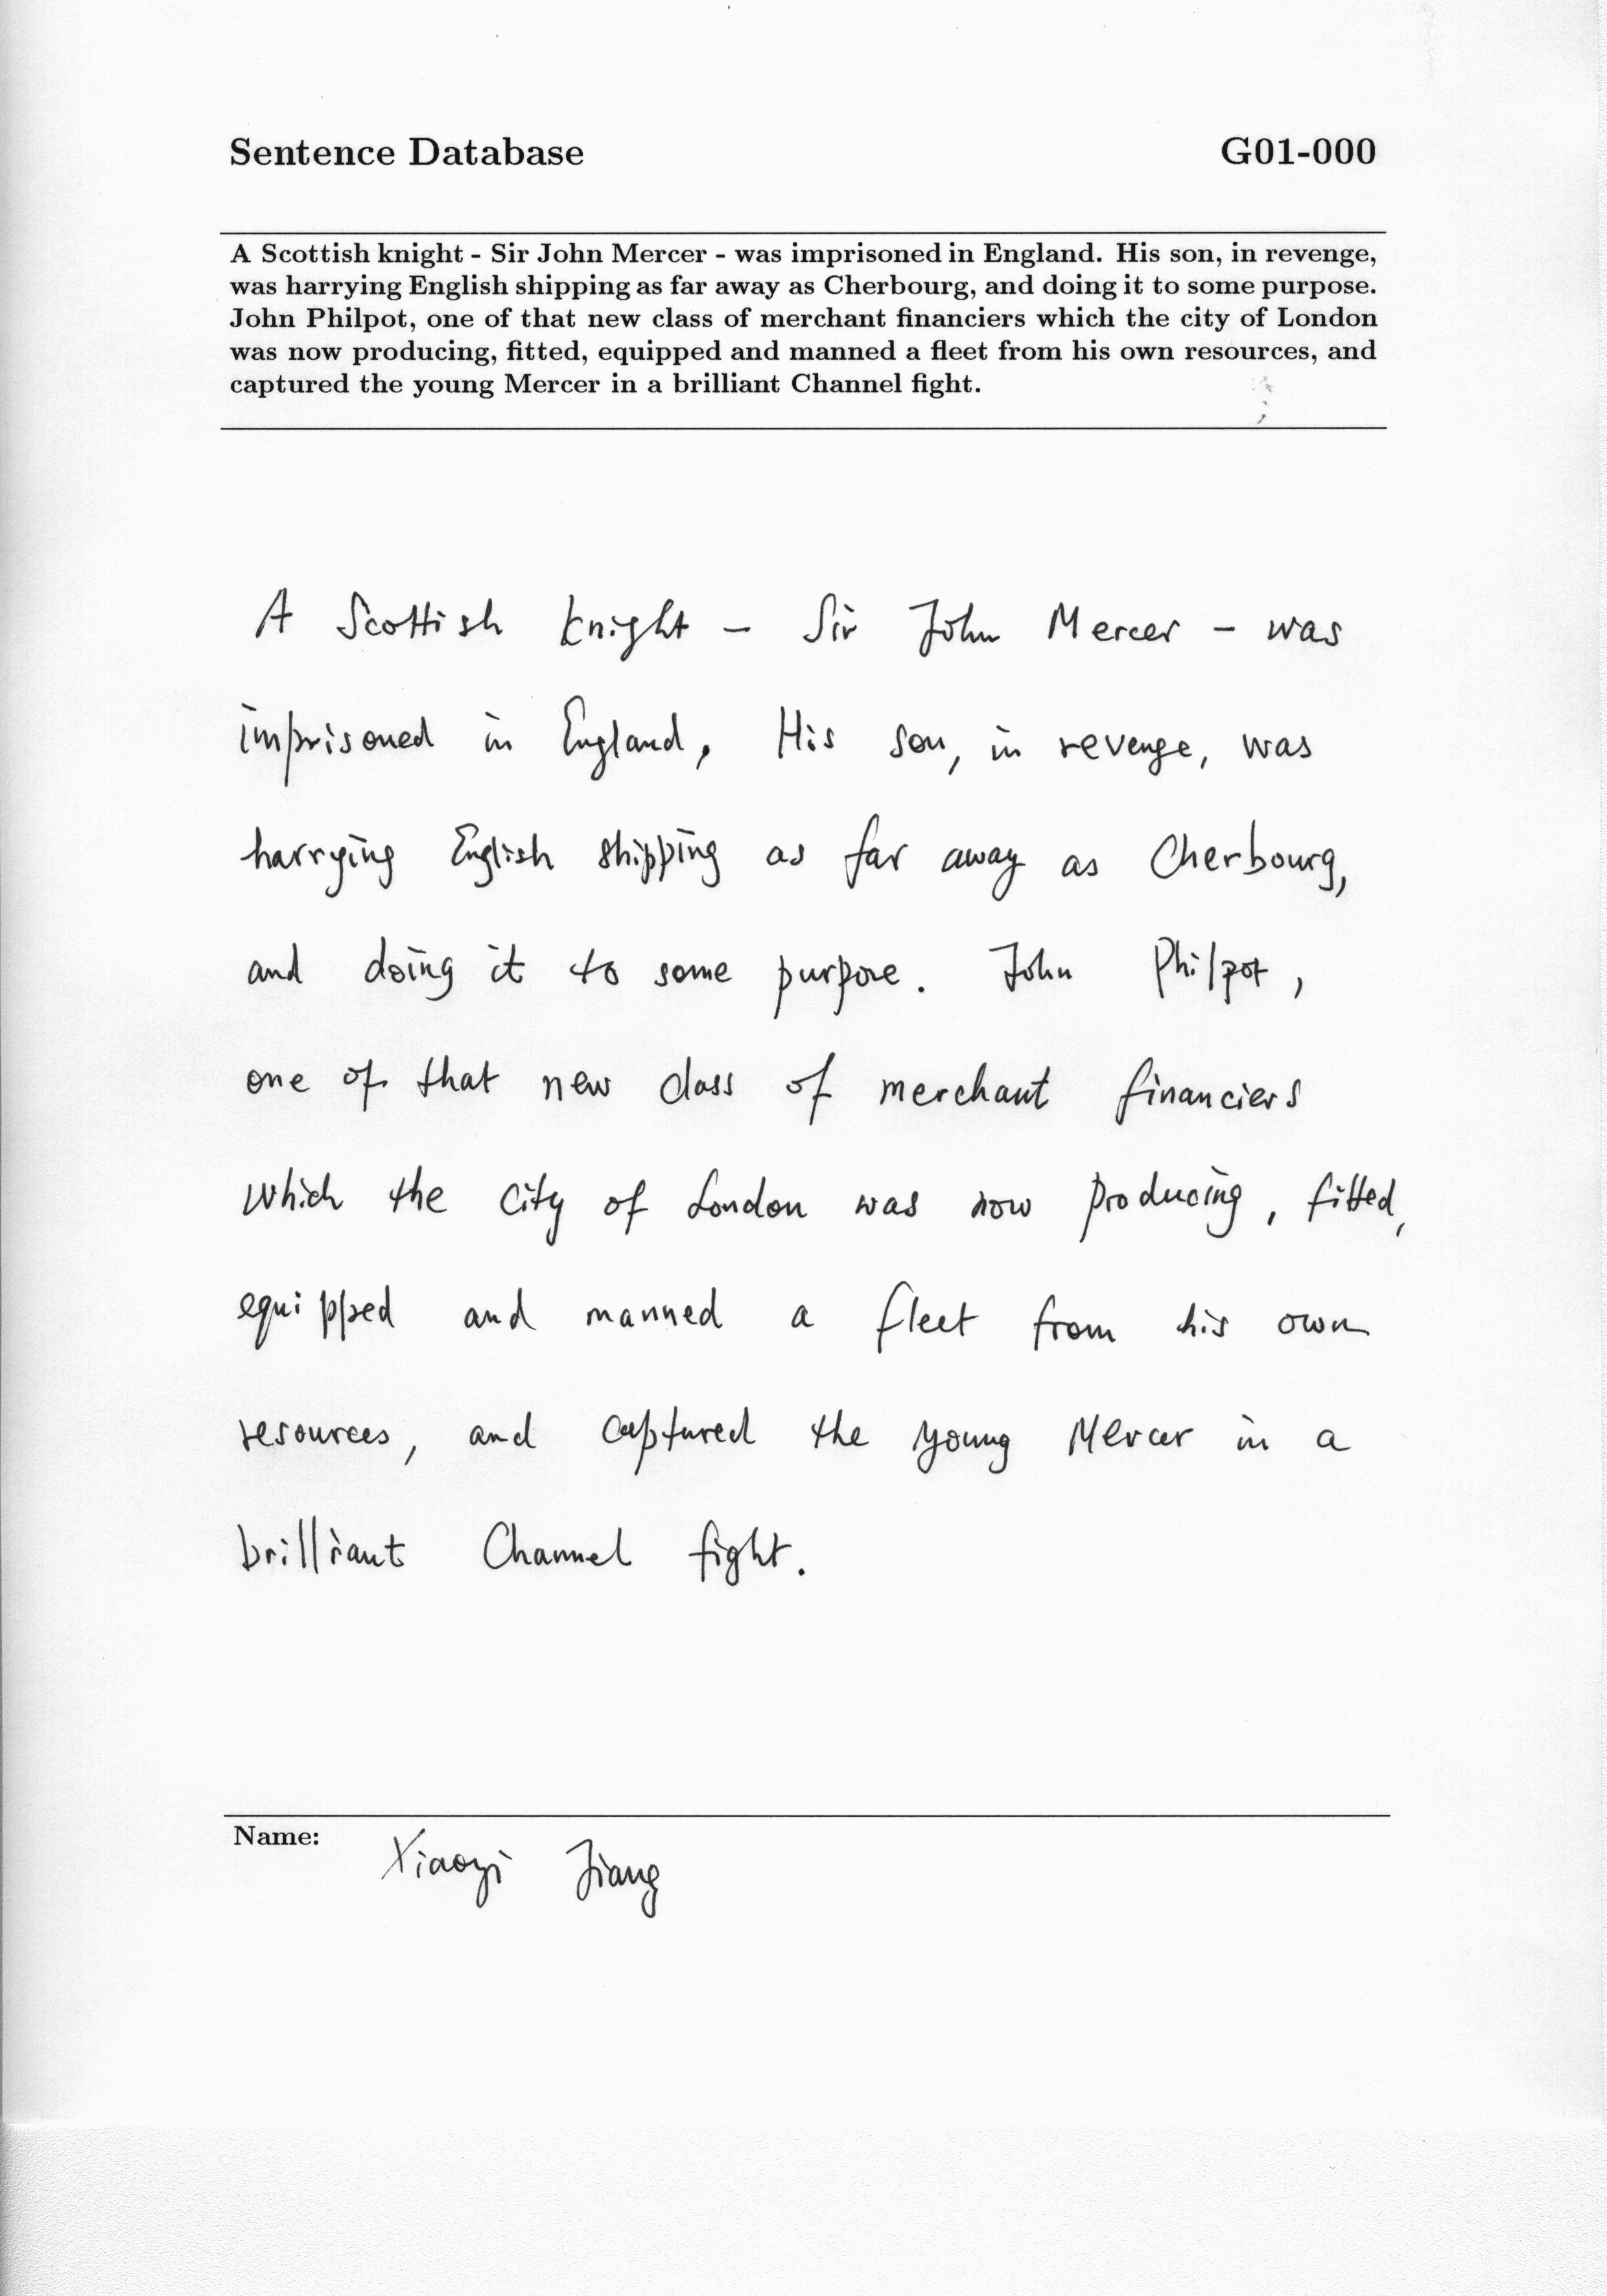 Sentence Database G01-000
A Scottish knight - Sir John Mercer - was imprisoned in England. His son, in revenge,
was harrying English shipping as far away as Cherbourg, and doing it to some purpose.
John Philpot, one of that new class of merchant financiers which the city of London
was now producing, fitted, equipped and manned a fleet from his own resources, and
captured the young Mercer in a brilliant Channel fight.
A Scottish knight - Sir John Mercer - was
imprisoned in England, His son, in revenge, was
harrying English shipping as far away as Cherbourg,
and doing it to some purpose. John Philpot,
one of that new class of merchant financiers
which the city of London was now producing, fitted,
equipped and manned a fleet from his own
resources, and captured the young Mercer in a
brilliant Channel fight.
Name: Xiaoyi Jiang